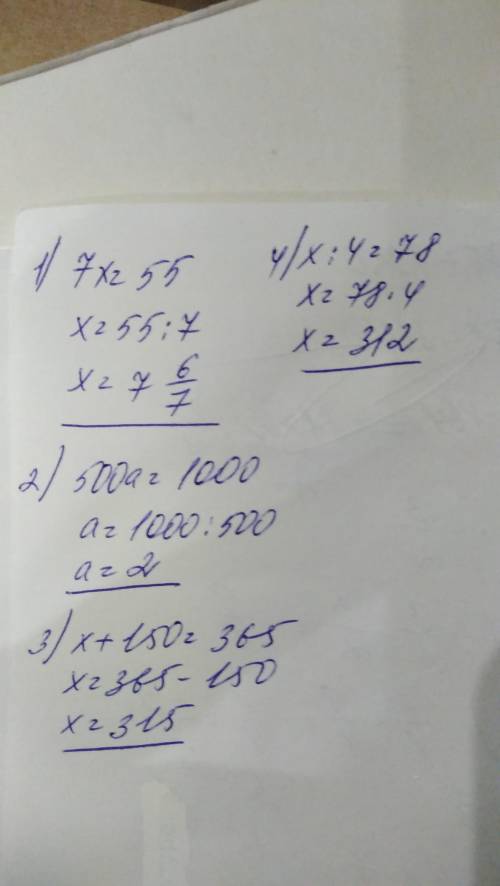 1) 7x = 55
x = 55 : 7
x = 7 6/7
2) 500a = 1000
a = 1000 : 500
a = 2
3) x + 150 = 365
x = 365 - 150
x = 315
4) x : 4 = 78
x = 78 · 4
x = 312